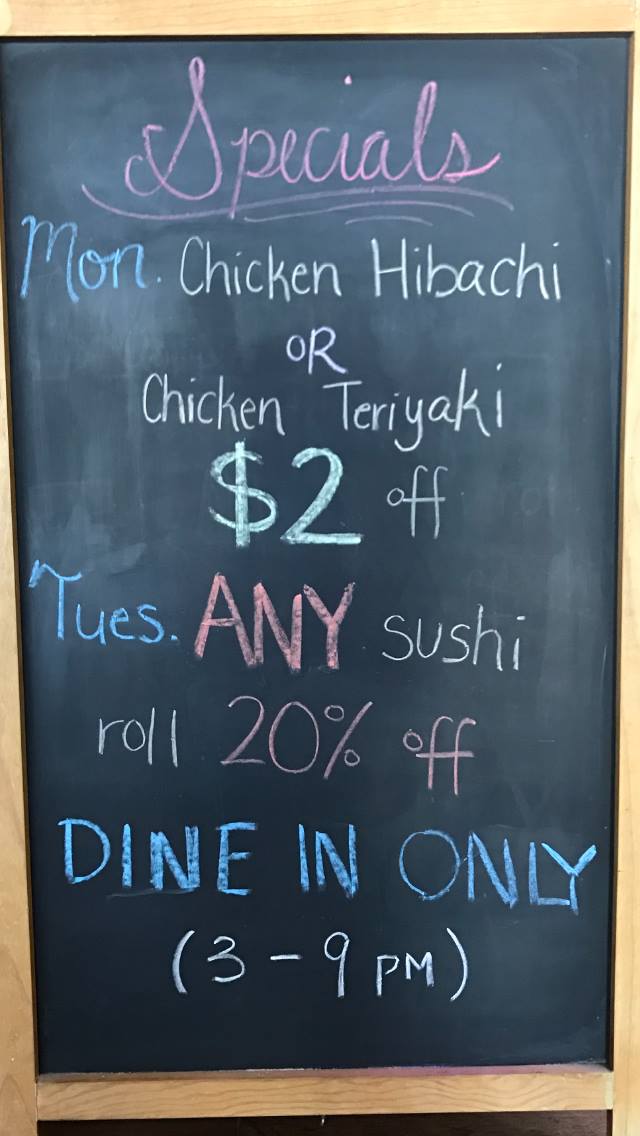 Specials
Mon. Chicken Hibachi
OR
Chicken Teriyaki
$2 off
Tues. ANY sushi
roll 20% off
DINE IN ONLY
(3-9 PM)